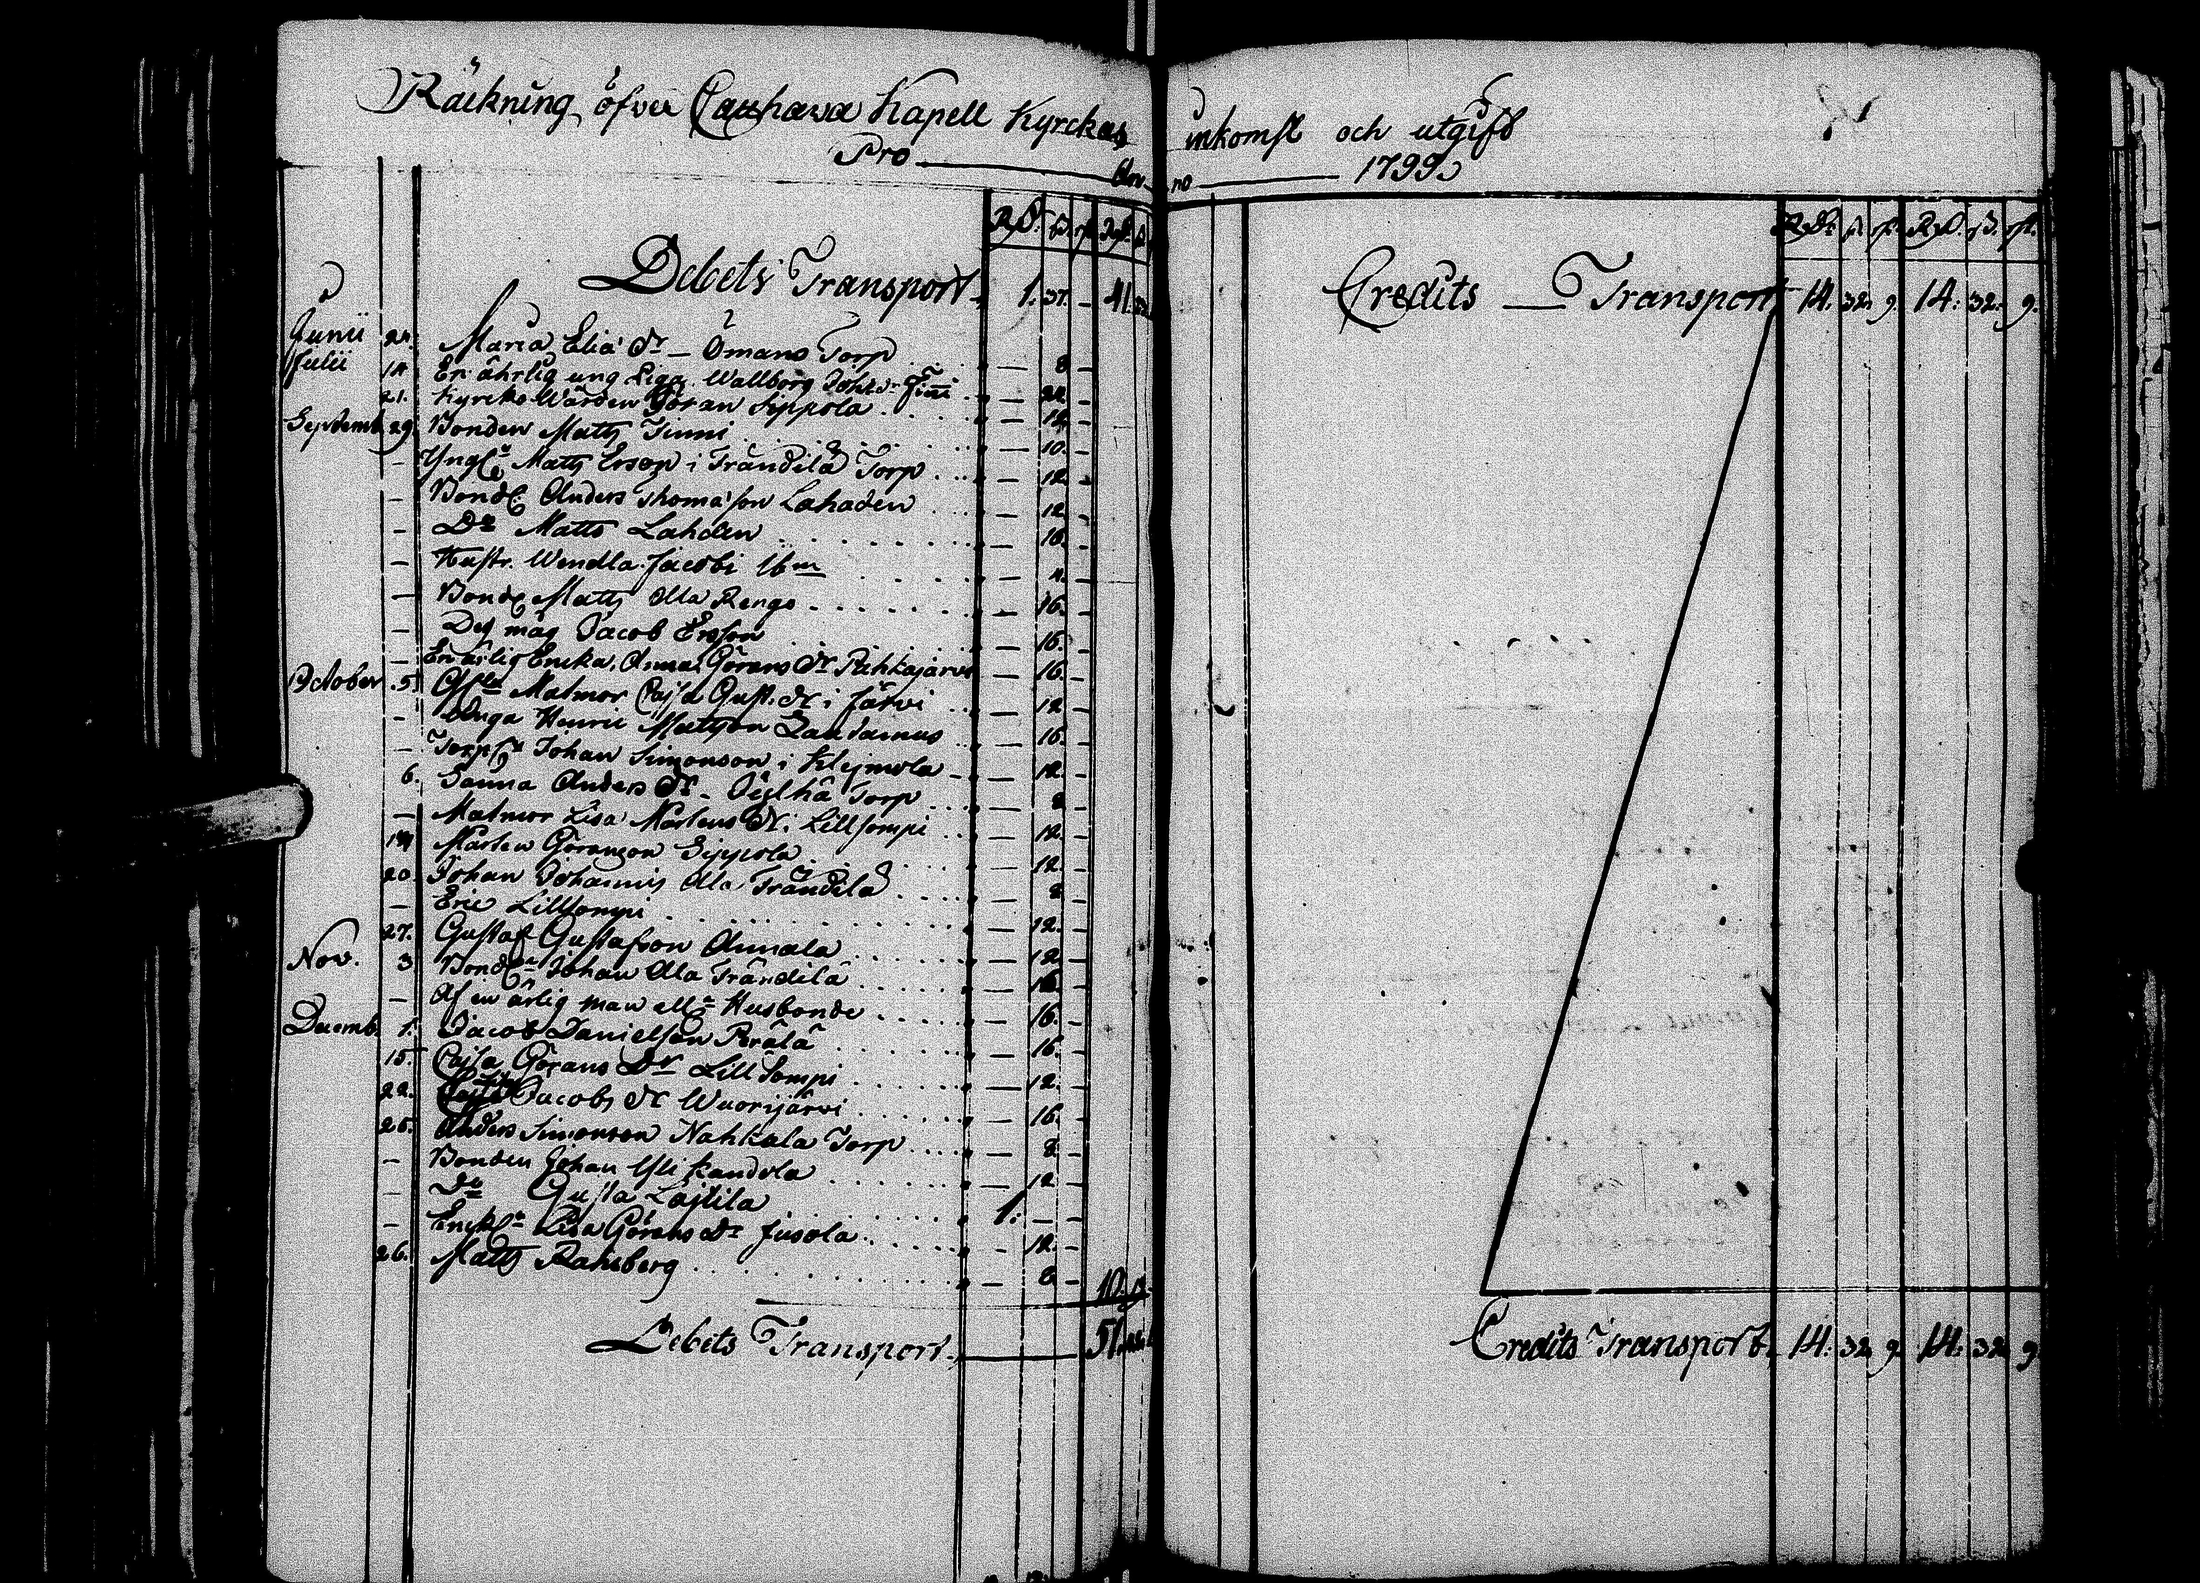 Räckning öfver Carrhawa Kapell Kyrckas inkomst och utgift
Pro Anno 1799
Rd. s. rst. Rd. s.
Debets Transport 1. 37. — 41.
Junii 24. Maria Elia Dr — Ömans Torp — 8 —
Julii 14 En ährlig ung Piga Wallborg Johsdr — 24 —
21. Kyrcko Wärden Göran Sippola — 12 —
Septemb. 29. Bonden Matts Tinni — 10. —
— Yngl. Matts Ersson i Trändilä Torp — 12 —
— Bond. Anders Thomasson Lahden — 12 —
— Do Matts Lahden — 16. —
— Hustr. Wendla Jacobi — 4. —
— Bond. Matts Alla Rengo — 16. —
— Des måg Jacob Ersson — 16. —
— En ärlig Encka, Anna Görans Dr Pihkajärvi — 16. —
October 5. Matmor Cajsa Gust. Dr i Järvi — 12 —
— Unga Henric Mattson Santamus — 16. —
— Johan Simonson i Klejmola — 12. —
6. Sanna Anders Dr Torp — 8 —
— Matmor Lisa Mårtens Dr i Lillsompi — 12. —
Mårten Göranson Sippola — 12. —
20. Johan Johannis Alla Trändilä — 8 —
— Eric Lillsompi — 12. —
27. Gustaf Gustafson Annala — 12 —
Nov. 3 Bond. Johan Alla Trändilä — 16. —
— Af en ärlig man ell. Husbonde — 16. —
Decemb. 1. Jacob Danielson Perälä — 16. —
15. Cajsa Görans Dr Lill Sompi — 12. —
22. Jacobs Dr Wuorijärvi — 16. —
25. Anders Simonson Nahkala Torp — 8 —
— Bonden Johan Yli Kandola — 12 —
— Do Gusta Lajtila 1. — —
— Enck. Lisa Görans Dr Jusola — 12. —
26. Matts Rahsberg — 8 — 10.
Debets Transport 51.
Rd. s. rst. Rd. s. rst.
Credits — Transport 14. 32. 9. 14. 32. 9.
Credits Transport. 14. 32. 9. 14. 32. 9.